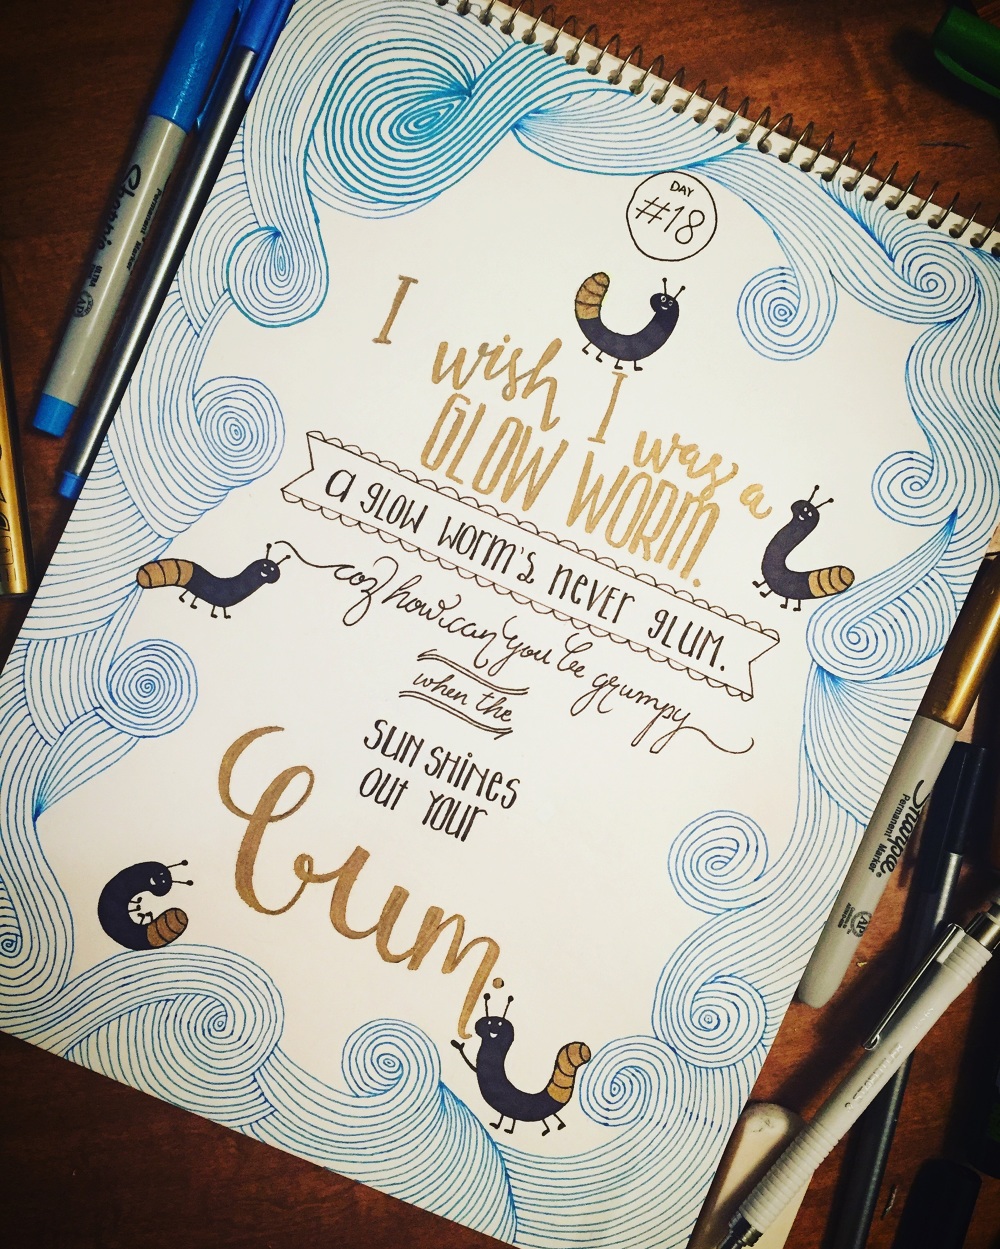 DAY
#18
I wish I was a
GLOW WORM.
a glow worm's never glum.
coz how can you be grumpy
when the
SUN SHINES
out Your
bum.
Sharpie
Permanent Marker
ULTRA
AP
Sharpie.
Permanent Marker
AP